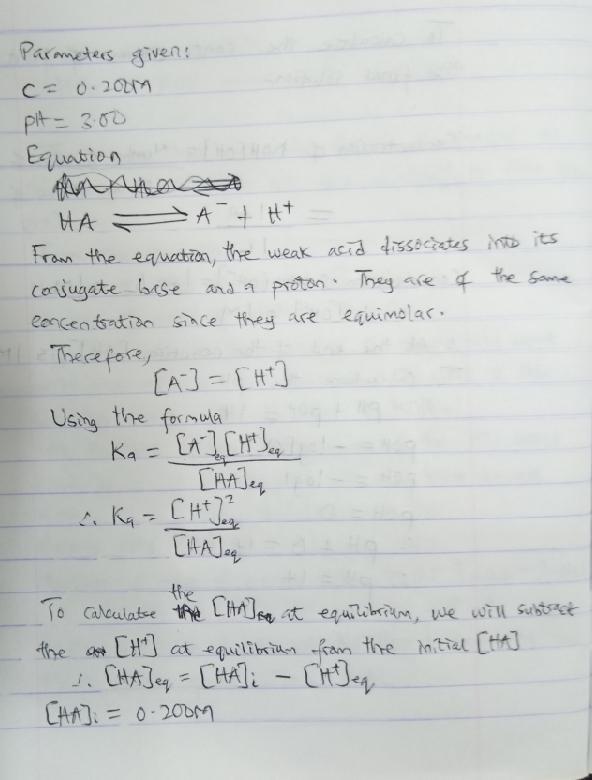 Parameters given:
C = 0.200M
pH = 3.00
Equation
HA ⇌ A⁻ + H⁺
From the equation, the weak acid dissociates into its
conjugate base and a proton. They are of the same
concentration since they are equimolar.
Therefore,
[A⁻] = [H⁺]
Using the formula
Ka = [A⁻]eq [H⁺]eq
[HA]eq
∴ Ka = [H⁺]²eq
[HA]eq
To calculate the [HA] at equilibrium, we will subtract
the [H⁺] at equilibrium from the initial [HA]
∴ [HA]eq = [HA]i - [H⁺]eq
[HA]i = 0.200M